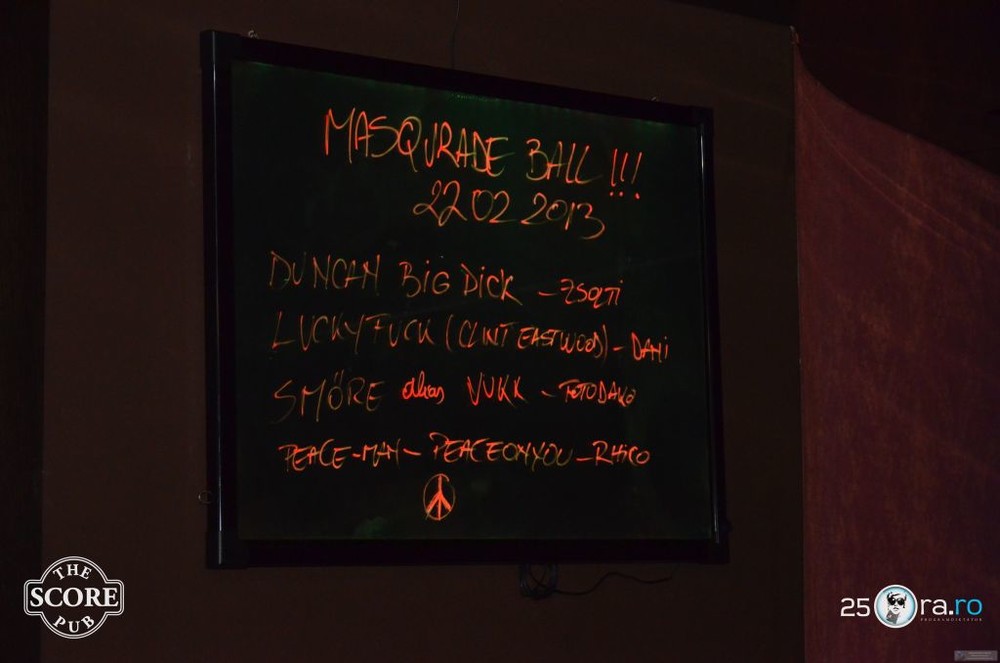 MASQURADE BALL !!!
22 02 2013
DUNCAN BIG DICK – ZSOLTI
LUCKYFUCK (CLINT EASTWOOD) – DANI
SMÖRE alias VUKK – FOTODAKO
PEACE-MAN – PEACEONYOU – RHICO
THE
SCORE
PUB
25 ra.ro